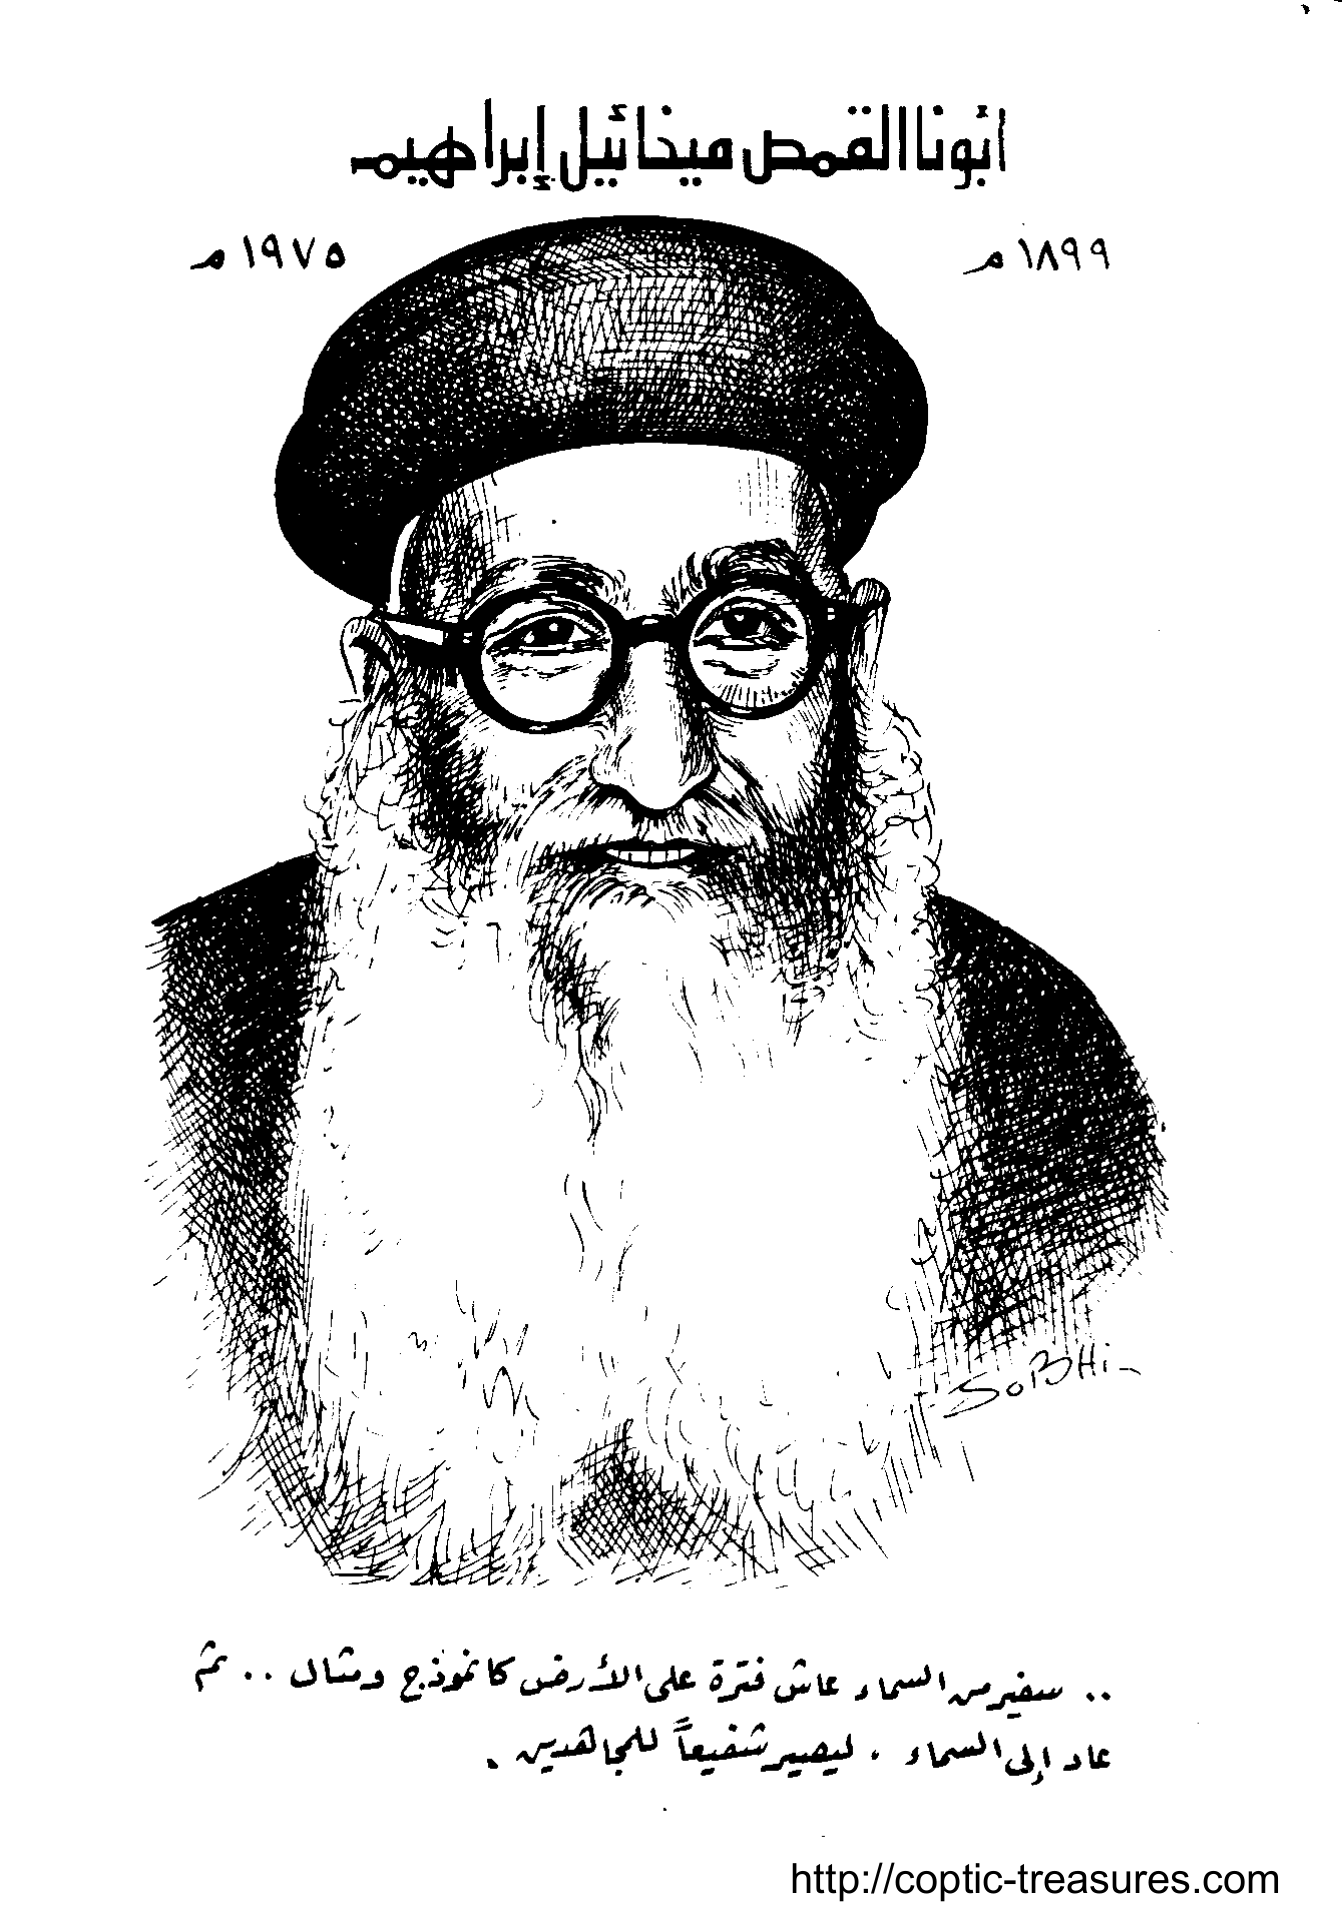 أبونا القمص ميخائيل إبراهيم
١٨٩٩ م
١٩٧٥ م
SOBHi
.. سفير من السماء عاش فترة على الأرض كانموذج ومثال .. ثم
عاد إلى السماء ، ليصير شفيعاً للمجاهدين .
http://coptic-treasures.com